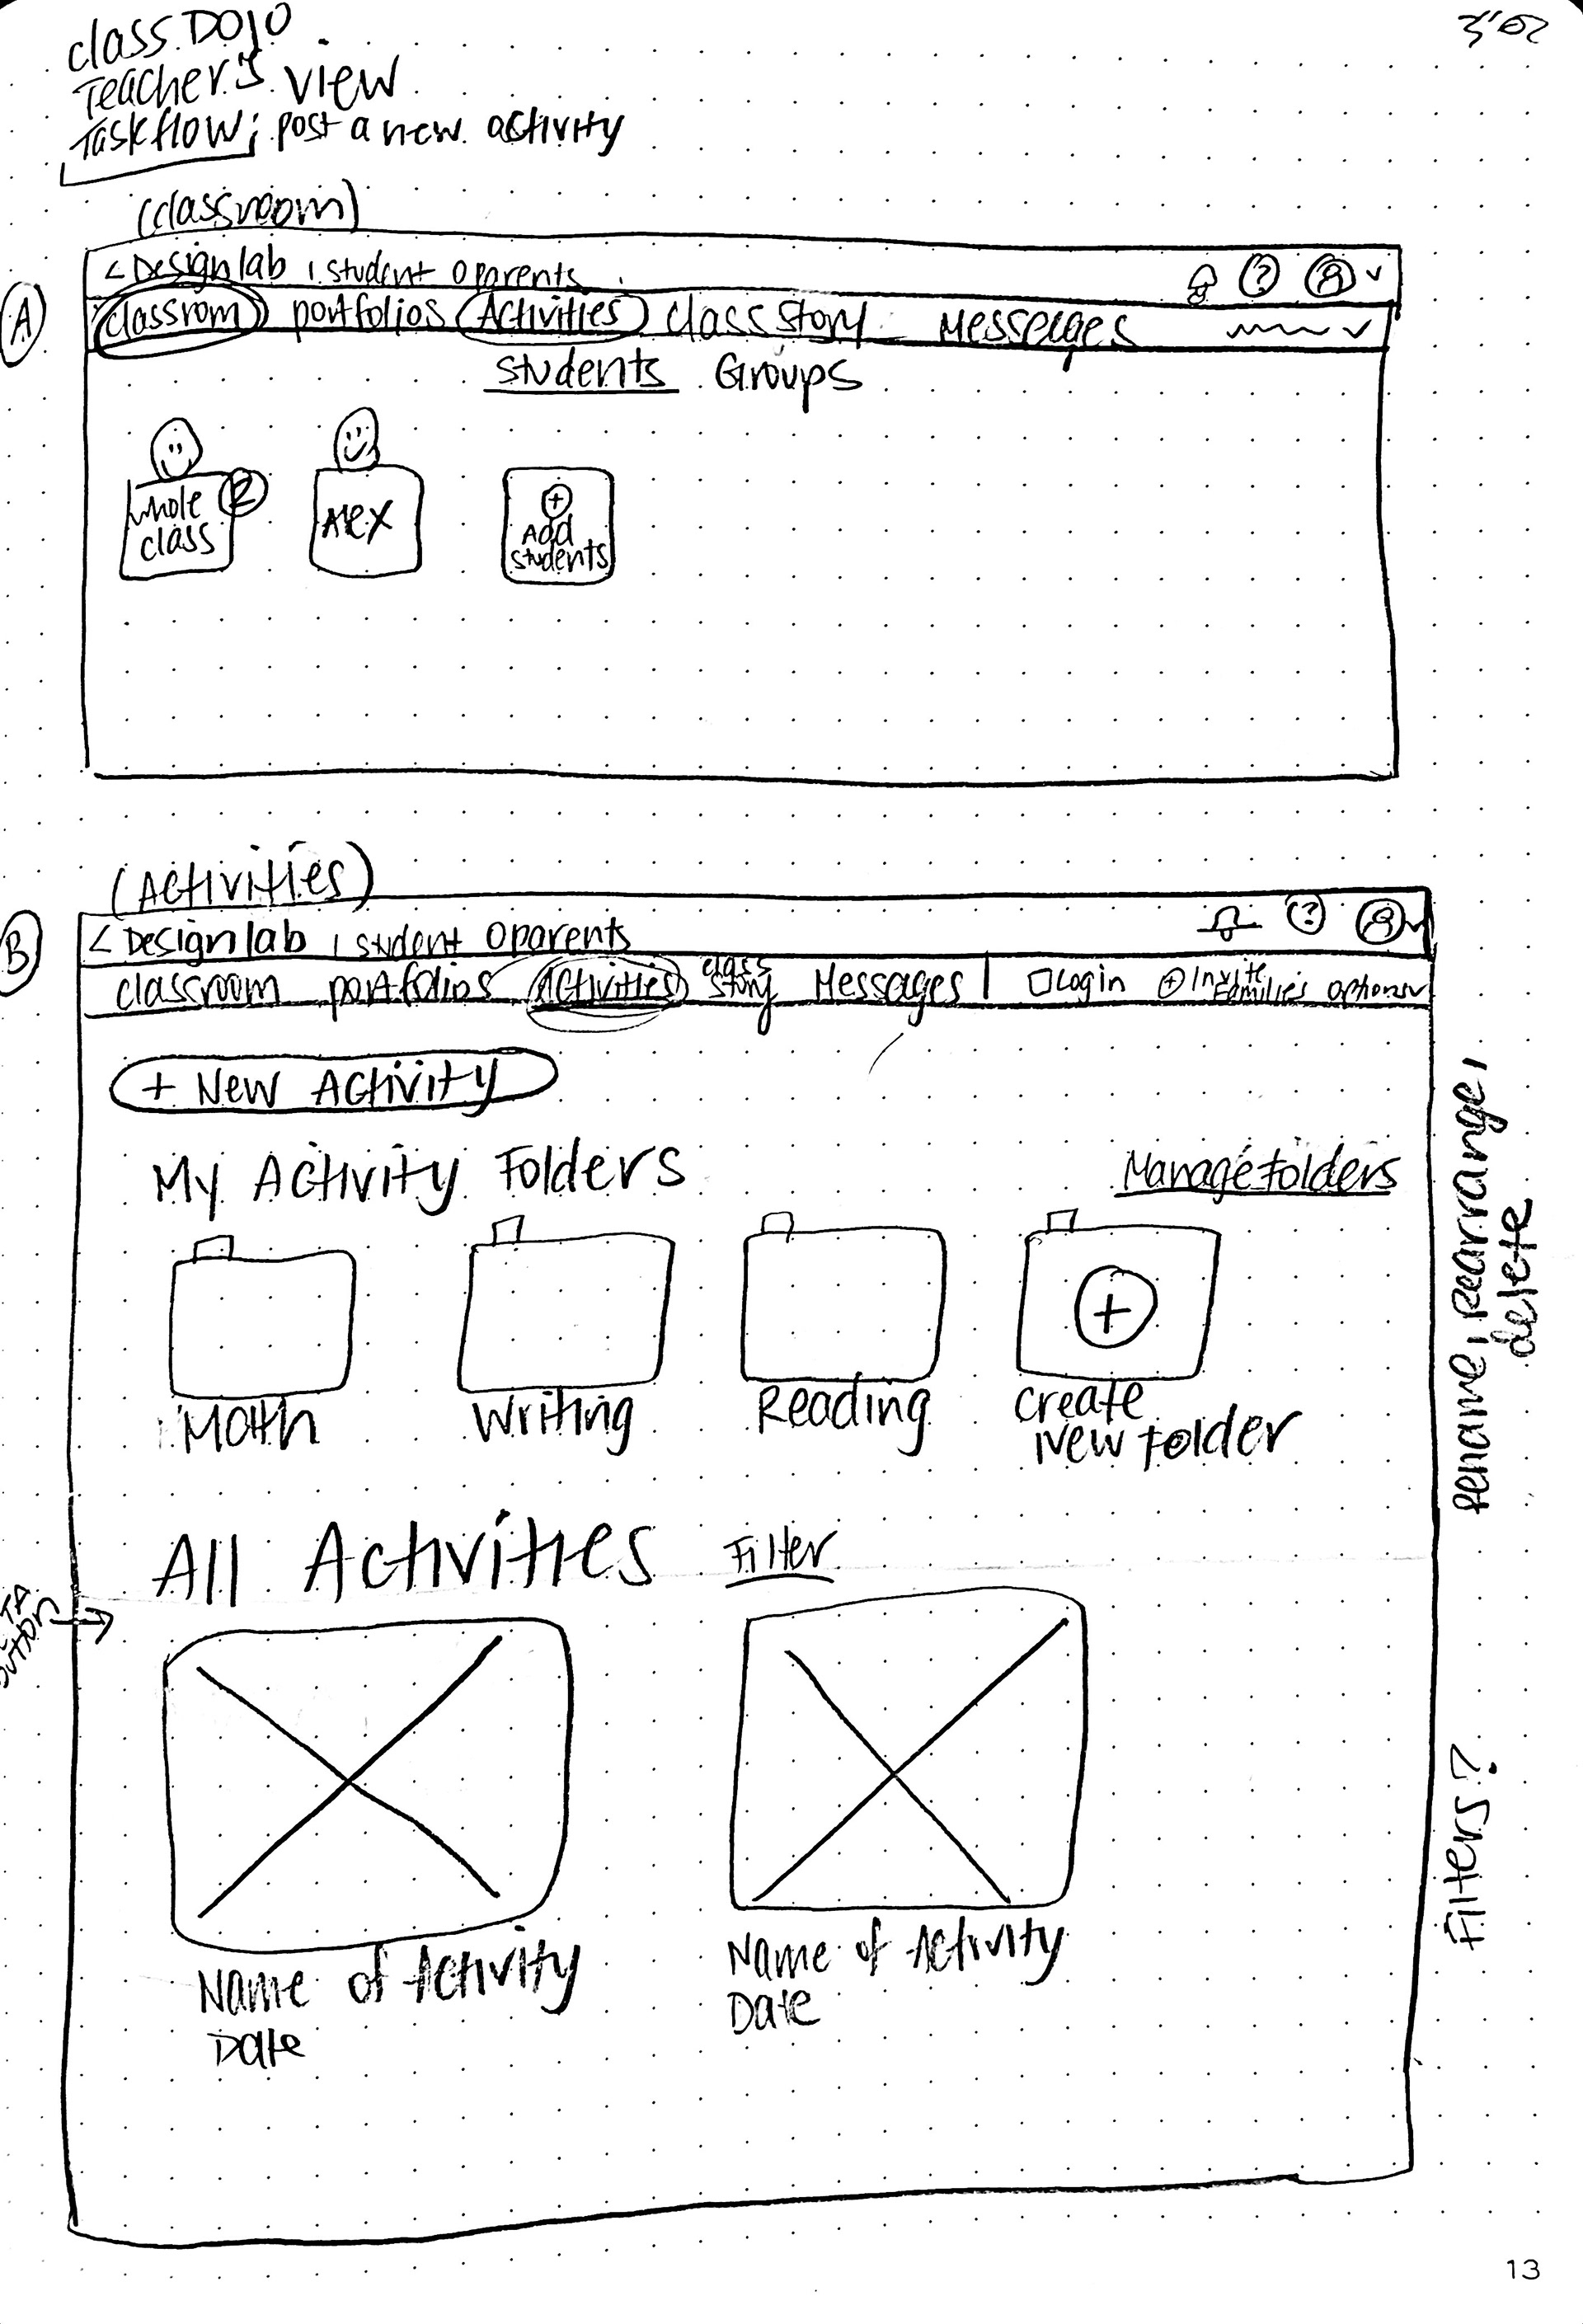 class DOJO
Teacher's view
Taskflow; post a new activity
(classroom)
A
< Designlab 1 student 0 parents
?
classrom portfolios Activities Class Story Messages
Students Groups
whole class
2
Alex
+
Add students
(Activities)
B
< Designlab 1 student 0 parents
?
classroom portfolios Activities class story Messages | Login + Invite Families options
+ New Activity
My Activity Folders
Manage folders
+
Math
Writing
Reading
create New Folder
rename, rearrange, delete
All Activities
Filter
Name of Activity
Date
Name of Activity
Date
Filters?
13